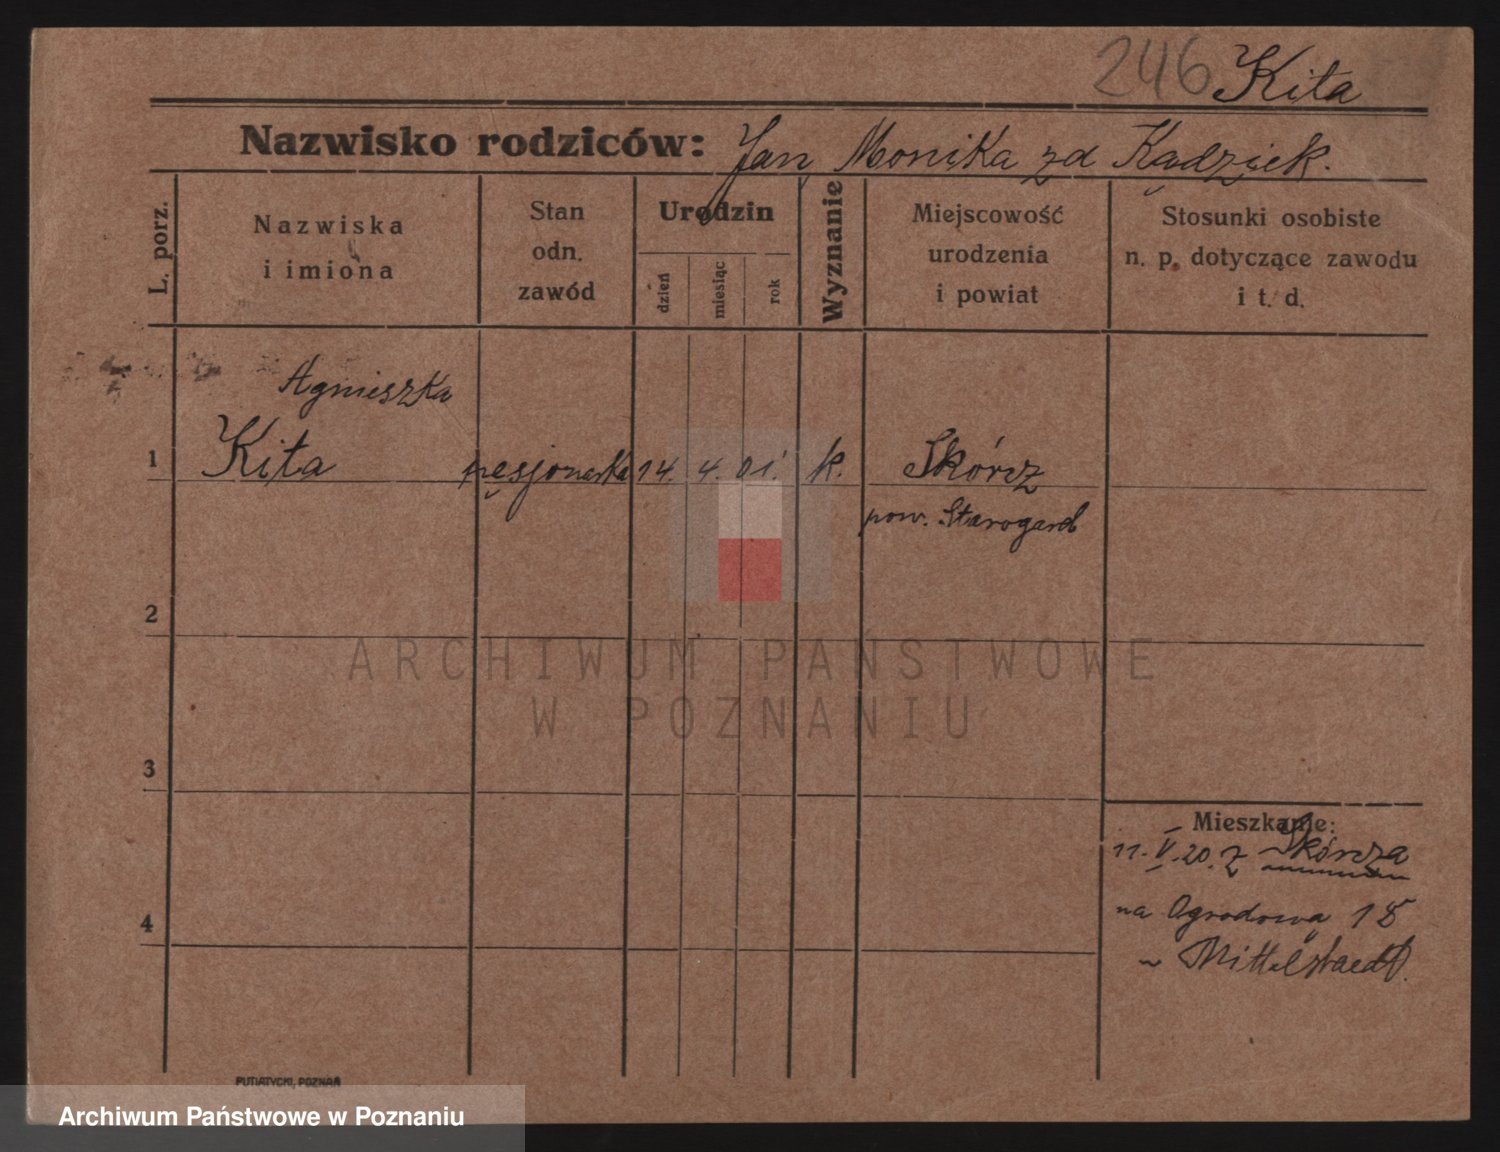 246 Kita
Nazwisko rodziców: Jan, Monika zd Kądziek.
L. porz.
Nazwiska
i imiona
Stan
odn.
zawód
Urodzin
dzień
miesiąc
rok
Wyznanie
Miejscowość
urodzenia
i powiat
Stosunki osobiste
n. p. dotyczące zawodu
i t. d.
Agnieszka
1 Kita pęsjonarka 14. 4. 01. k. Skórcz
pow. Starogard
2
ARCHIWUM PAŃSTWOWE
W POZNANIU
3
Mieszkanie:
11. V. 20. z Skórcza
4
na Ogrodową 18
~ Mittelstaedt.
PUTIATYCKI, POZNAŃ
Archiwum Państwowe w Poznaniu